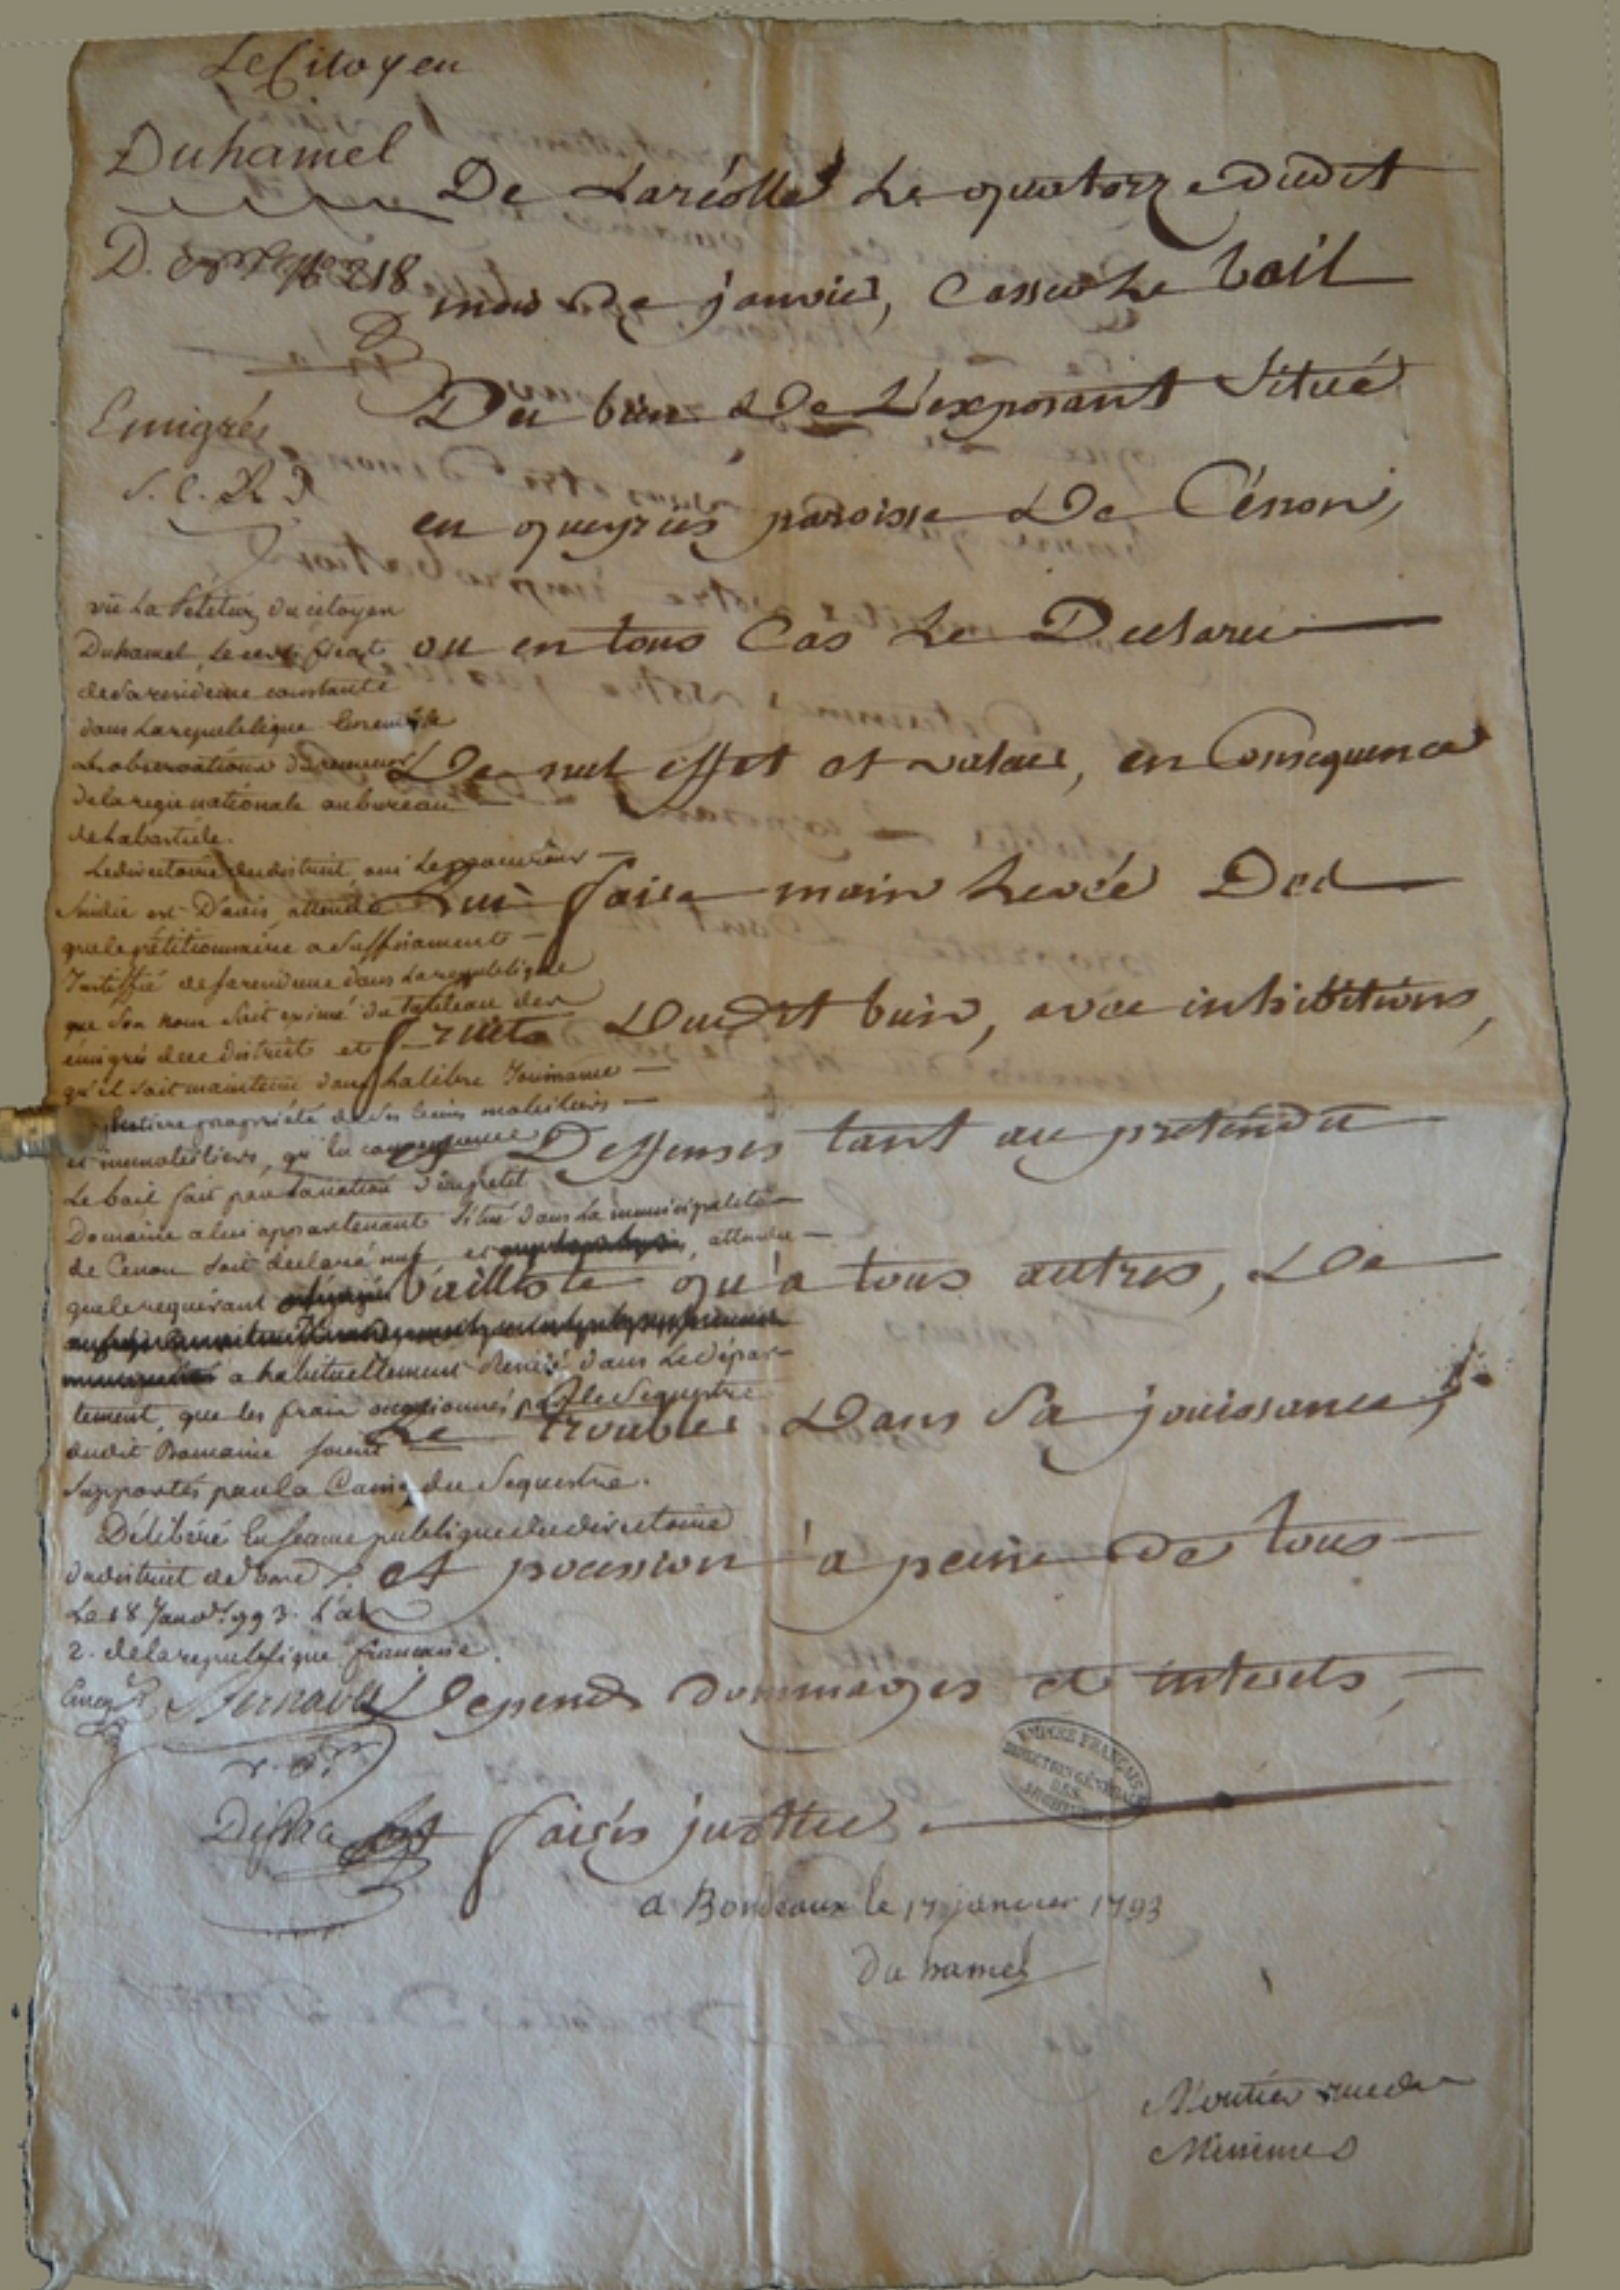 Le Citoyen
Duhamel
D. N° 218
Emigrés
S. C. R.
De Laréolle Le quatorze dudit
mois de janvier, Casser Le bail
Du bien De L'exposant Situé
en queyries paroisse De Cénon,
ou en tous Cas Le Declarer
De nul effet et valeur, en Consequence
Lui faire main Levée Des
fruits Dudit bien, avec inhibitions,
Deffenses tant au pretendu
bailliste qu'a tous autres, De
Le troubler Dans Sa jouissance,
et pocession a peine de tous
Depens dommages et interets,
et faires justice
a Bordeaux le 17 janvier 1793
du hamel
vû La Pétition du citoyen
Duhamel, Le certificat
de Sa residence constante
dans La republique Ensemble
Les observations du receveur
de la regie nationale au bureau
de Labastide.
Le directoire du district, oui Le procureur
Sindic est D'avis, attendu
que le pétitionnaire a Suffisament
Justiffié de Sa residence dans La republique
que Son nom Soit du tableau des
émigrés de ce district et
qu'il soit maintenu dans La libre Jouissance
propriété de Ses biens mobiliers
et immobiliers, qu'en consequence
Le bail fait par d'un petit
Domaine a lui appartenant Situé dans La municipalité
de Cenon Soit declaré nul et attendu
que le requérant
a habituellement Residé dans Le dépar-
tement, que les frais occasionnés par le Sequestre
dudit Domaine Soient
Supportés par la Caisse du Sequestre.
Délibéré En Seance publique du directoire
du district de Bord.x
Le 18 Janv. 1793. L'an
2. de la republique française.
Bernada
EMPIRE FRANÇAIS
DIRECTION GÉNÉRALE
DES
ARCHIVES
rue des
Minimes